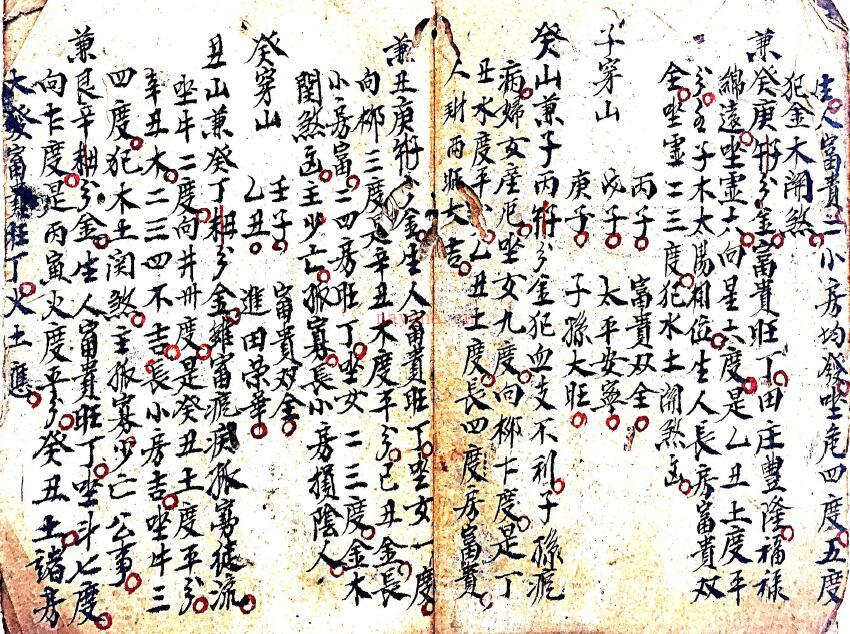 生人富貴二小房均發坐危四度五度
犯金木関煞
兼癸庚辦分金富貴旺丁田庄豐隆福祿
綿遠坐虛六向星六度是乙丑土度平
分五子木太陽相位生人長房富貴双
全坐虛二三度犯水土関煞凶
子穿山
丙子 富貴双全
戊子 太平安寧
庚子 子孫大旺
癸山兼子丙辦分金犯血支不利子孫疕
病婦女產厄坐女九度向柳七度是丁
丑水度平乙丑土度長四度房富貴
人財两旺大吉
兼丑庚辦分金生人富貴旺丁坐女一度
向柳三度是辛丑木度平分己丑金長
小房富二四房旺丁坐女二三度金木
関煞凶主少亡孤寡長小房損陰人
癸穿山
壬子 富貴双全
乙丑 進田荣華
丑山兼癸丁相分金雖富疕疾孤寡徒流
坐牛二度向井卅度是癸丑土度平分
辛丑木二三四不吉長小房吉坐牛三
四度犯木土関煞主孤寡少亡公事
兼艮辛相分金生人富貴旺丁坐斗七度
向七度是丙寅火度平分癸丑土諸房
大發富貴旺丁火土應